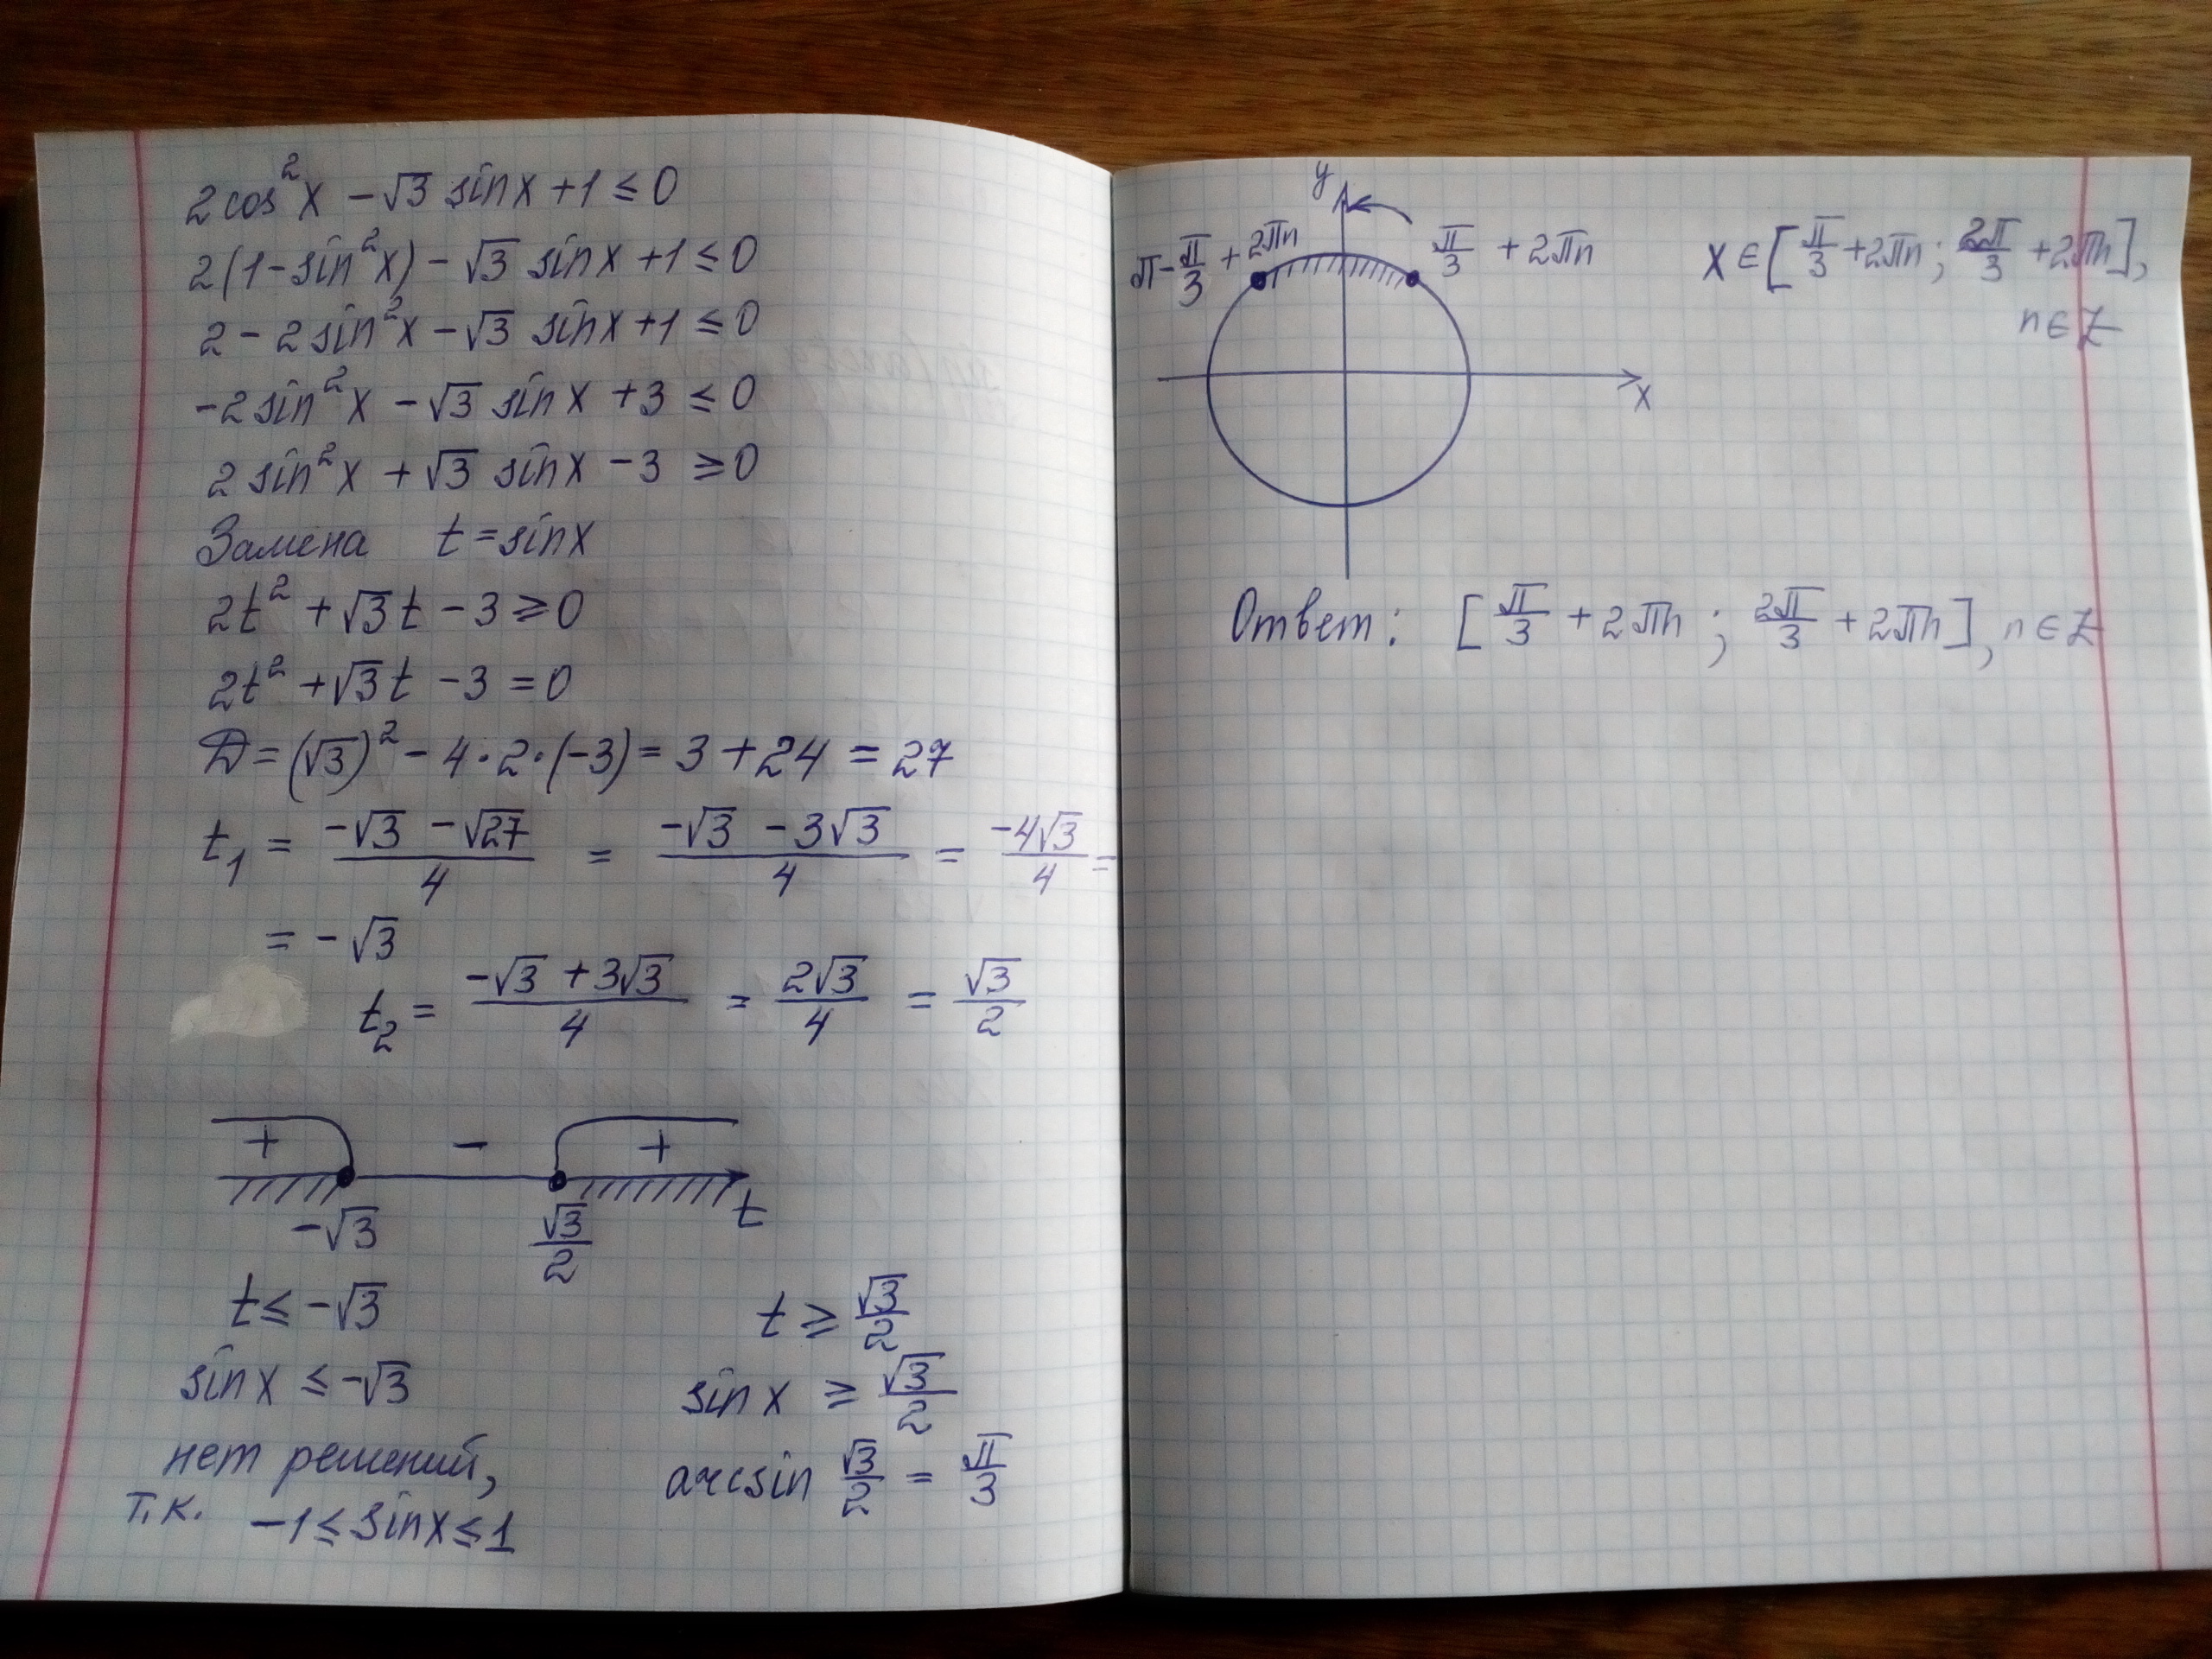 2cos²x − √3 sinx + 1 ≤ 0
2(1 − sin²x) − √3 sinx + 1 ≤ 0
2 − 2sin²x − √3 sinx + 1 ≤ 0
−2sin²x − √3 sinx + 3 ≤ 0
2sin²x + √3 sinx − 3 ≥ 0
Замена t = sinx
2t² + √3t − 3 ≥ 0
2t² + √3t − 3 = 0
D = (√3)² − 4·2·(−3) = 3 + 24 = 27
t₁ = (−√3 − √27)/4 = (−√3 − 3√3)/4 = −4√3/4 =
= −√3
t₂ = (−√3 + 3√3)/4 = 2√3/4 = √3/2
+ − +
−√3 √3/2 t
t ≤ −√3 t ≥ √3/2
sinx ≤ −√3 sinx ≥ √3/2
нет решений, arcsin √3/2 = π/3
т.к. −1 ≤ sinx ≤ 1
y
π − π/3 + 2πn π/3 + 2πn x ∈ [π/3 + 2πn; 2π/3 + 2πn],
n ∈ Z
x
Ответ: [π/3 + 2πn; 2π/3 + 2πn], n ∈ Z